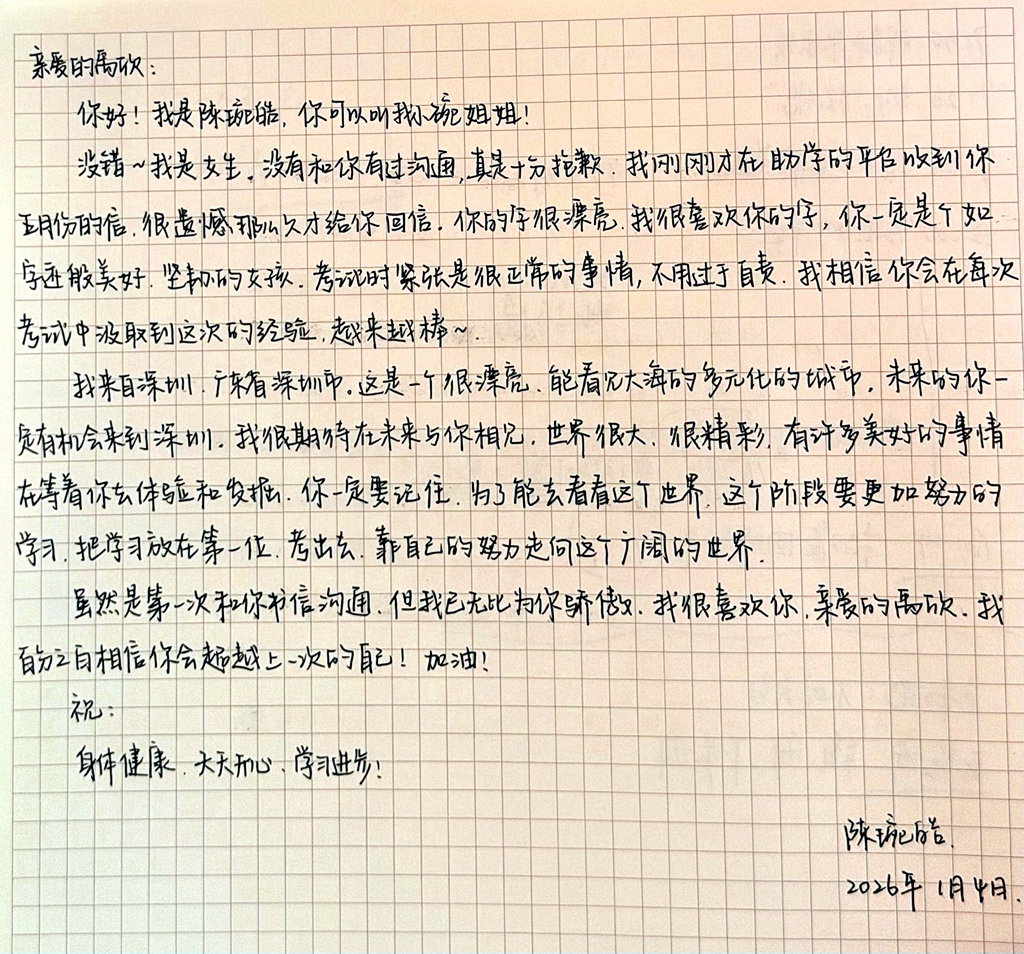 亲爱的禹欣:
你好！我是陈琬皓，你可以叫我小琬姐姐！
没错~我是女生。没有和你有过沟通,真是十分抱歉.我刚刚才在助学的平台收到你
五月份的信.很遗憾那么久才给你回信.你的字很漂亮.我很喜欢你的字,你一定是个如
字迹般美好.坚韧的女孩.考试时紧张是很正常的事情,不用过于自责.我相信你会在每次
考试中汲取到这次的经验.越来越棒~.
我来自深圳.广东省深圳市.这是一个很漂亮.能看见大海的多元化的城市.未来的你一
定有机会来到深圳.我很期待在未来与你相见.世界很大.很精彩.有许多美好的事情
在等着你去体验和发掘.你一定要记住.为了能去看看这个世界.这个阶段要更加努力的
学习.把学习放在第一位.考出去.靠自己的努力走向这个广阔的世界.
虽然是第一次和你书信沟通.但我已无比为你骄傲.我很喜欢你.亲爱的禹欣.我
百分之百相信你会超越上一次的自己！加油！
祝:
身体健康.天天开心.学习进步！
陈琬皓.
2026年1月4日.